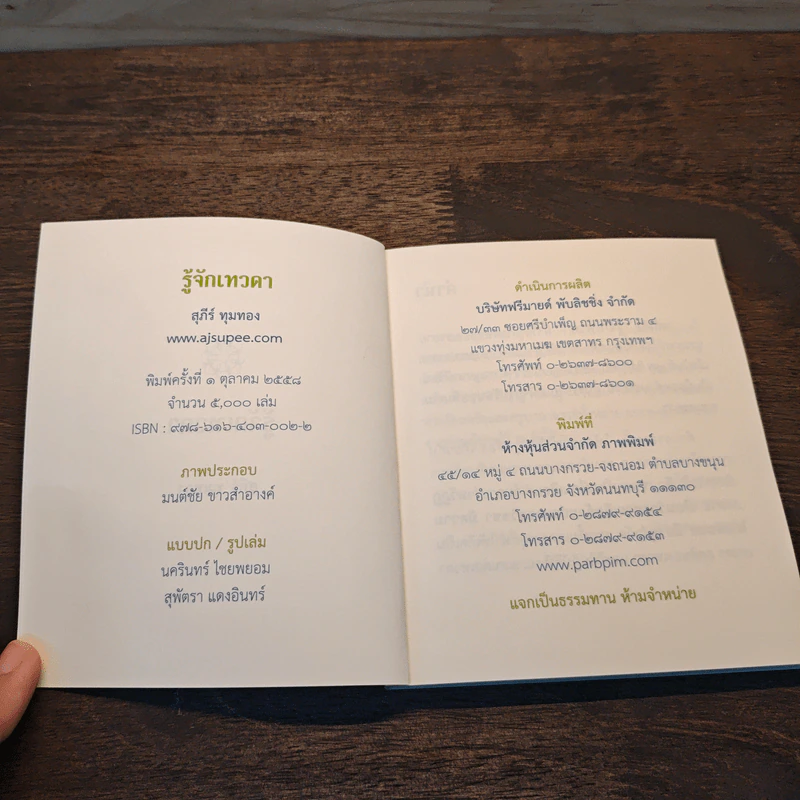 รู้จักเทวดา
สุภีร์ ทุมทอง
www.ajsupee.com
พิมพ์ครั้งที่ ๑ ตุลาคม ๒๕๕๘
จำนวน ๕,๐๐๐ เล่ม
ISBN : ๙๗๘-๖๑๖-๔๐๓-๐๐๒-๒
ภาพประกอบ
มนต์ชัย ขาวสำอางค์
แบบปก / รูปเล่ม
นครินทร์ ไชยพยอม
สุพัตรา แดงอินทร์
ดำเนินการผลิต
บริษัทฟรีมายด์ พับลิชชิ่ง จำกัด
๒๗/๓๓ ซอยศรีบำเพ็ญ ถนนพระราม ๔
แขวงทุ่งมหาเมฆ เขตสาทร กรุงเทพฯ
โทรศัพท์ ๐-๒๖๓๗-๘๖๐๐
โทรสาร ๐-๒๖๓๗-๘๖๐๑
พิมพ์ที่
ห้างหุ้นส่วนจำกัด ภาพพิมพ์
๔๕/๑๔ หมู่ ๔ ถนนบางกรวย-จงถนอม ตำบลบางขนุน
อำเภอบางกรวย จังหวัดนนทบุรี ๑๑๑๓๐
โทรศัพท์ ๐-๒๘๗๙-๙๑๕๔
โทรสาร ๐-๒๘๗๙-๙๑๕๓
www.parbpim.com
แจกเป็นธรรมทาน ห้ามจำหน่าย